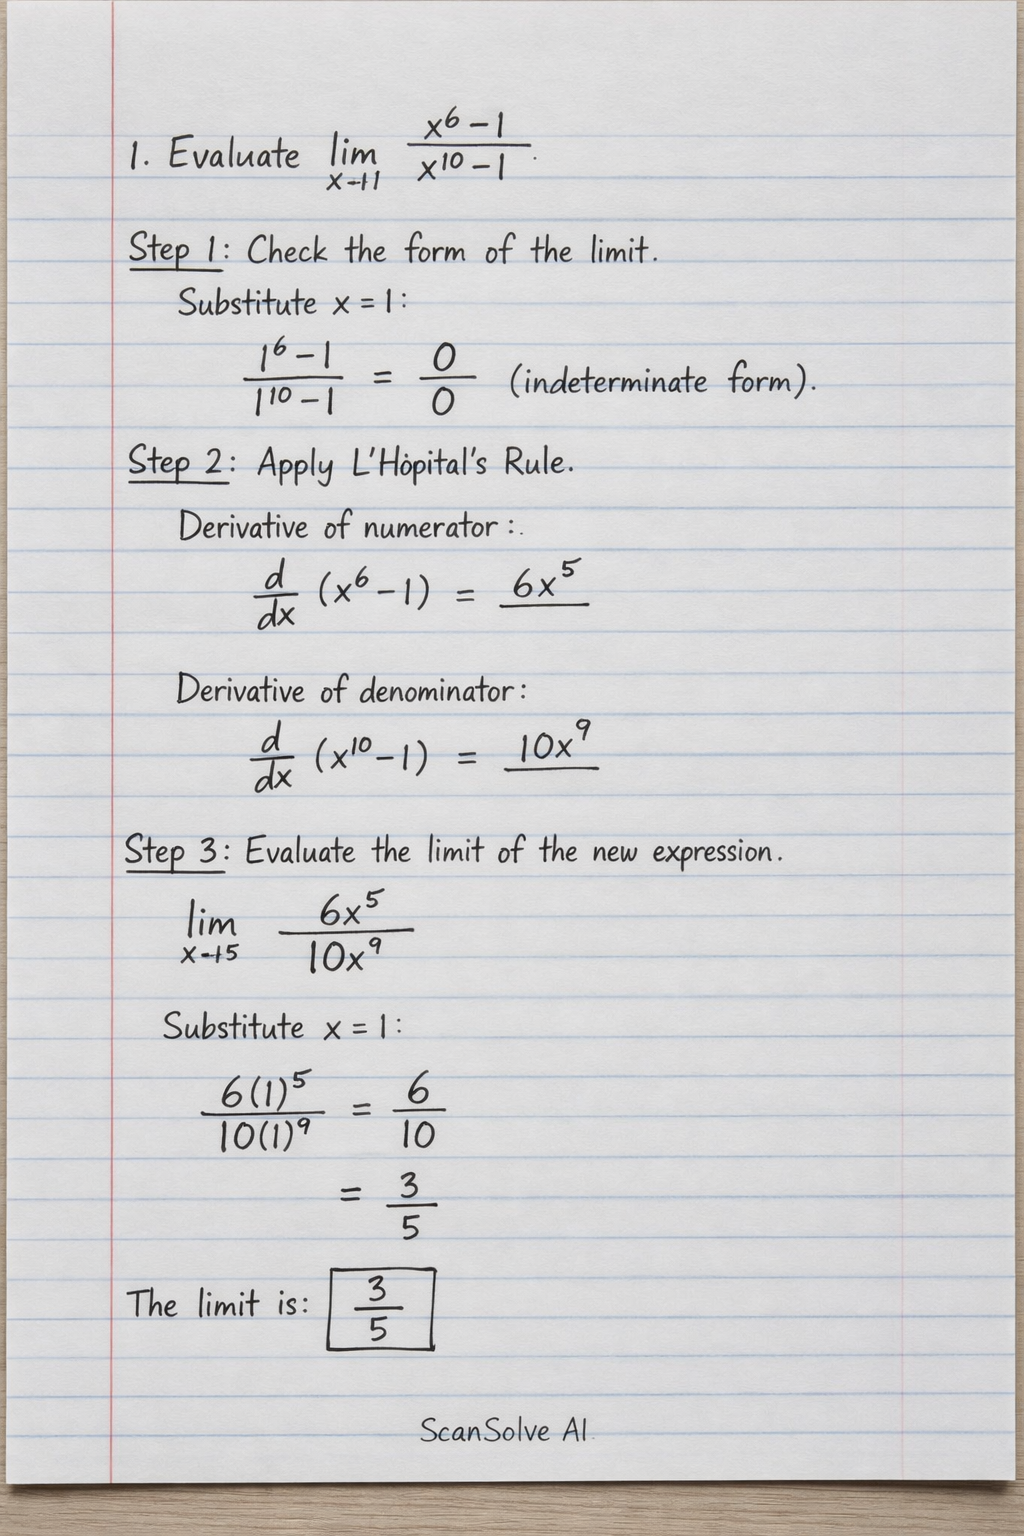 1. Evaluate lim x→1 x^6 - 1 / x^10 - 1.
Step 1: Check the form of the limit.
Substitute x = 1:
1^6 - 1 / 1^10 - 1 = 0 / 0 (indeterminate form).
Step 2: Apply L'Hôpital's Rule.
Derivative of numerator:.
d/dx (x^6 - 1) = 6x^5
Derivative of denominator:
d/dx (x^10 - 1) = 10x^9
Step 3: Evaluate the limit of the new expression.
lim x→5 6x^5 / 10x^9
Substitute x = 1:
6(1)^5 / 10(1)^9 = 6 / 10
= 3 / 5
The limit is: 3 / 5
ScanSolve AI